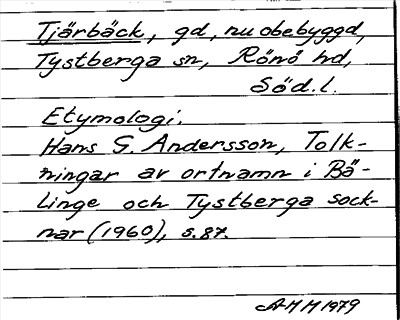 Tjärbäck, gd, nu obebyggd,
Tystberga sn, Rönö hd,
Söd. l.
Etymologi:
Hans G. Andersson, Tolk-
ningar av ortnamn i Bä-
linge och Tystberga sock-
nar (1960), s. 87.
AMM 1979